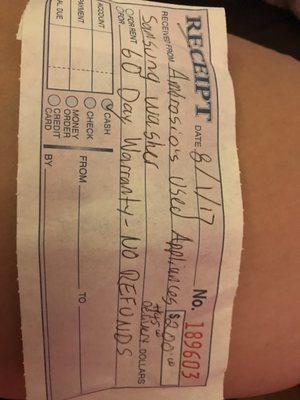 RECEIPT DATE 8/1/17 No. 189603
RECEIVED FROM Ambrosio's Used Appliances $200.00
+45.00 delivery DOLLARS
Samsung Washer
FOR RENT
FOR 60 Day Warranty - NO REFUNDS
ACCOUNT CASH
PAYMENT CHECK FROM TO
MONEY ORDER
BAL. DUE CREDIT CARD BY